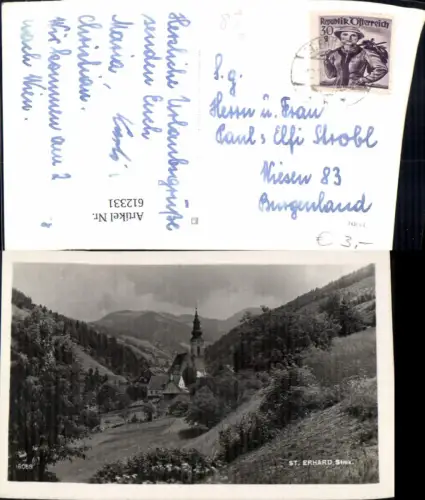 Herzliche Urlaubsgrüße
senden Euch
Maria, Karli,
Christian.
Wir kommen am 2
nach Wien.
Artikel Nr.
612331
Republik Österreich
30
S.g.
Herrn u. Frau
Paul & Elfi Strobl
Wiesen 83
Burgenland
€ 3,-
6089
ST. ERHARD, Stmk.